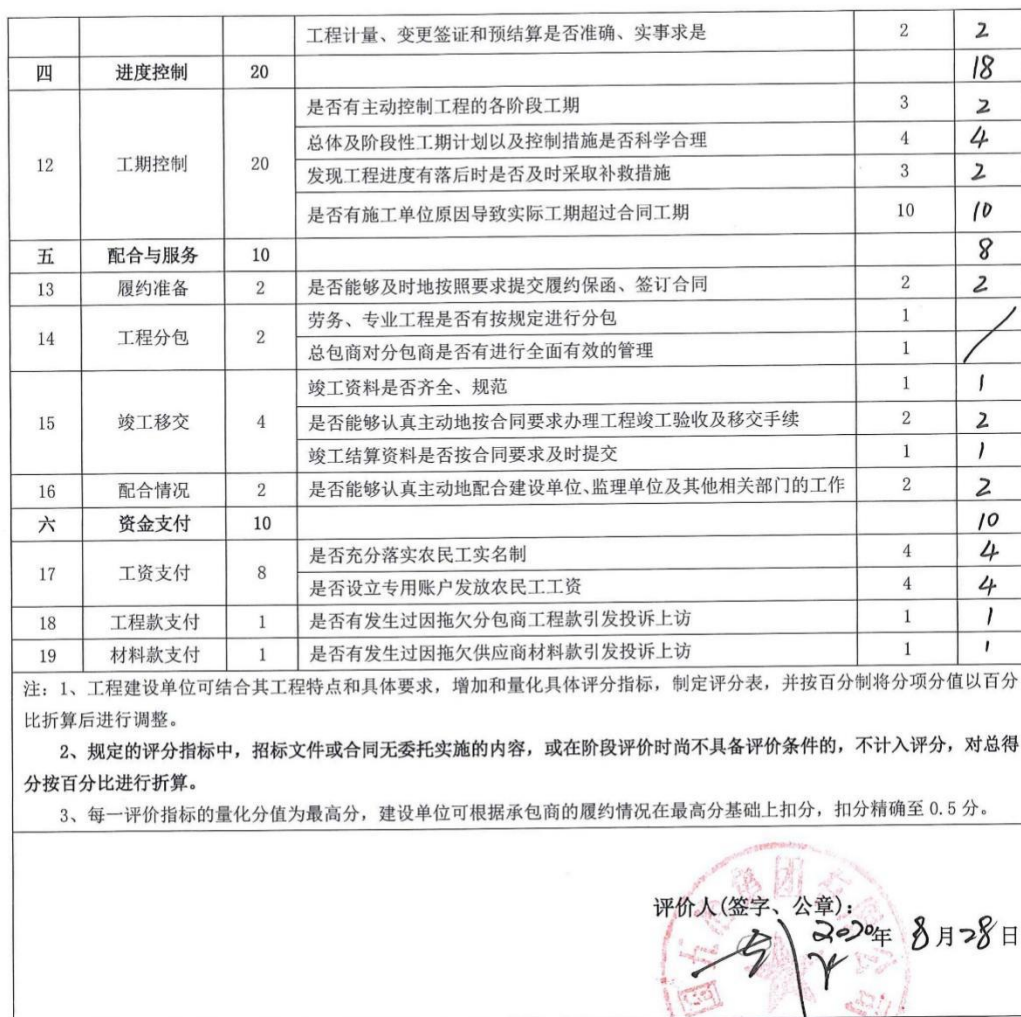 工程计量、变更签证和预结算是否准确、实事求是 2 2
四 进度控制 20 18
12 工期控制 20 是否有主动控制工程的各阶段工期 3 2
总体及阶段性工期计划以及控制措施是否科学合理 4 4
发现工程进度有落后时是否及时采取补救措施 3 2
是否有施工单位原因导致实际工期超过合同工期 10 10
五 配合与服务 10 8
13 履约准备 2 是否能够及时地按照要求提交履约保函、签订合同 2 2
14 工程分包 2 劳务、专业工程是否有按规定进行分包 1
总包商对分包商是否有进行全面有效的管理 1
15 竣工移交 4 竣工资料是否齐全、规范 1 1
是否能够认真主动地按合同要求办理工程竣工验收及移交手续 2 2
竣工结算资料是否按合同要求及时提交 1 1
16 配合情况 2 是否能够认真主动地配合建设单位、监理单位及其他相关部门的工作 2 2
六 资金支付 10 10
17 工资支付 8 是否充分落实农民工实名制 4 4
是否设立专用账户发放农民工工资 4 4
18 工程款支付 1 是否有发生过因拖欠分包商工程款引发投诉上访 1 1
19 材料款支付 1 是否有发生过因拖欠供应商材料款引发投诉上访 1 1
注：1、工程建设单位可结合其工程特点和具体要求，增加和量化具体评分指标，制定评分表，并按百分制将分项分值以百分
比折算后进行调整。
2、规定的评分指标中，招标文件或合同无委托实施的内容，或在阶段评价时尚不具备评价条件的，不计入评分，对总得
分按百分比进行折算。
3、每一评价指标的量化分值为最高分，建设单位可根据承包商的履约情况在最高分基础上扣分，扣分精确至 0.5 分。
评价人(签字、公章)：
2020年 8月28日